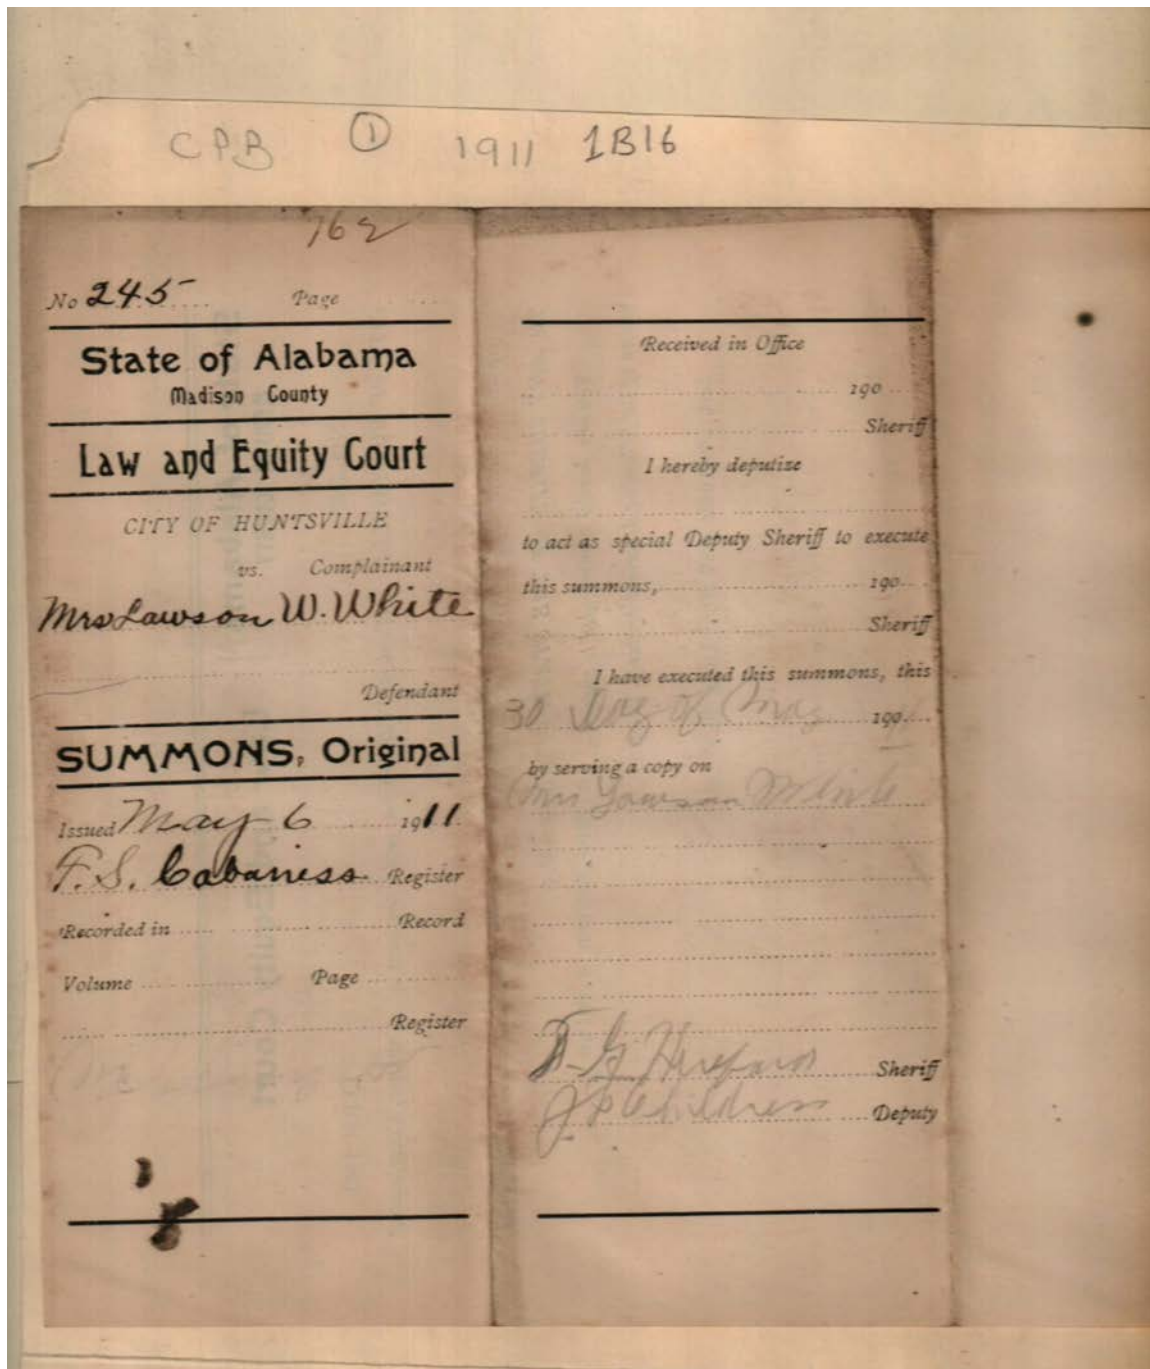 CPB ① 1911 1B16
762
No 245 Page
State of Alabama
Madison County
Law and Equity Court
CITY OF HUNTSVILLE
vs. Complainant
Mrs Lawson W. White
Defendant
SUMMONS, Original
Issued May 6 1911.
F. S. Cabaniss Register
Recorded in Record
Volume Page
Register
Received in Office
190
Sheriff
I hereby deputize
to act as special Deputy Sheriff to execute
this summons, 190
Sheriff
I have executed this summons, this
30 day of May 190
by serving a copy on
Mrs Lawson White
Sheriff
J P Childress Deputy